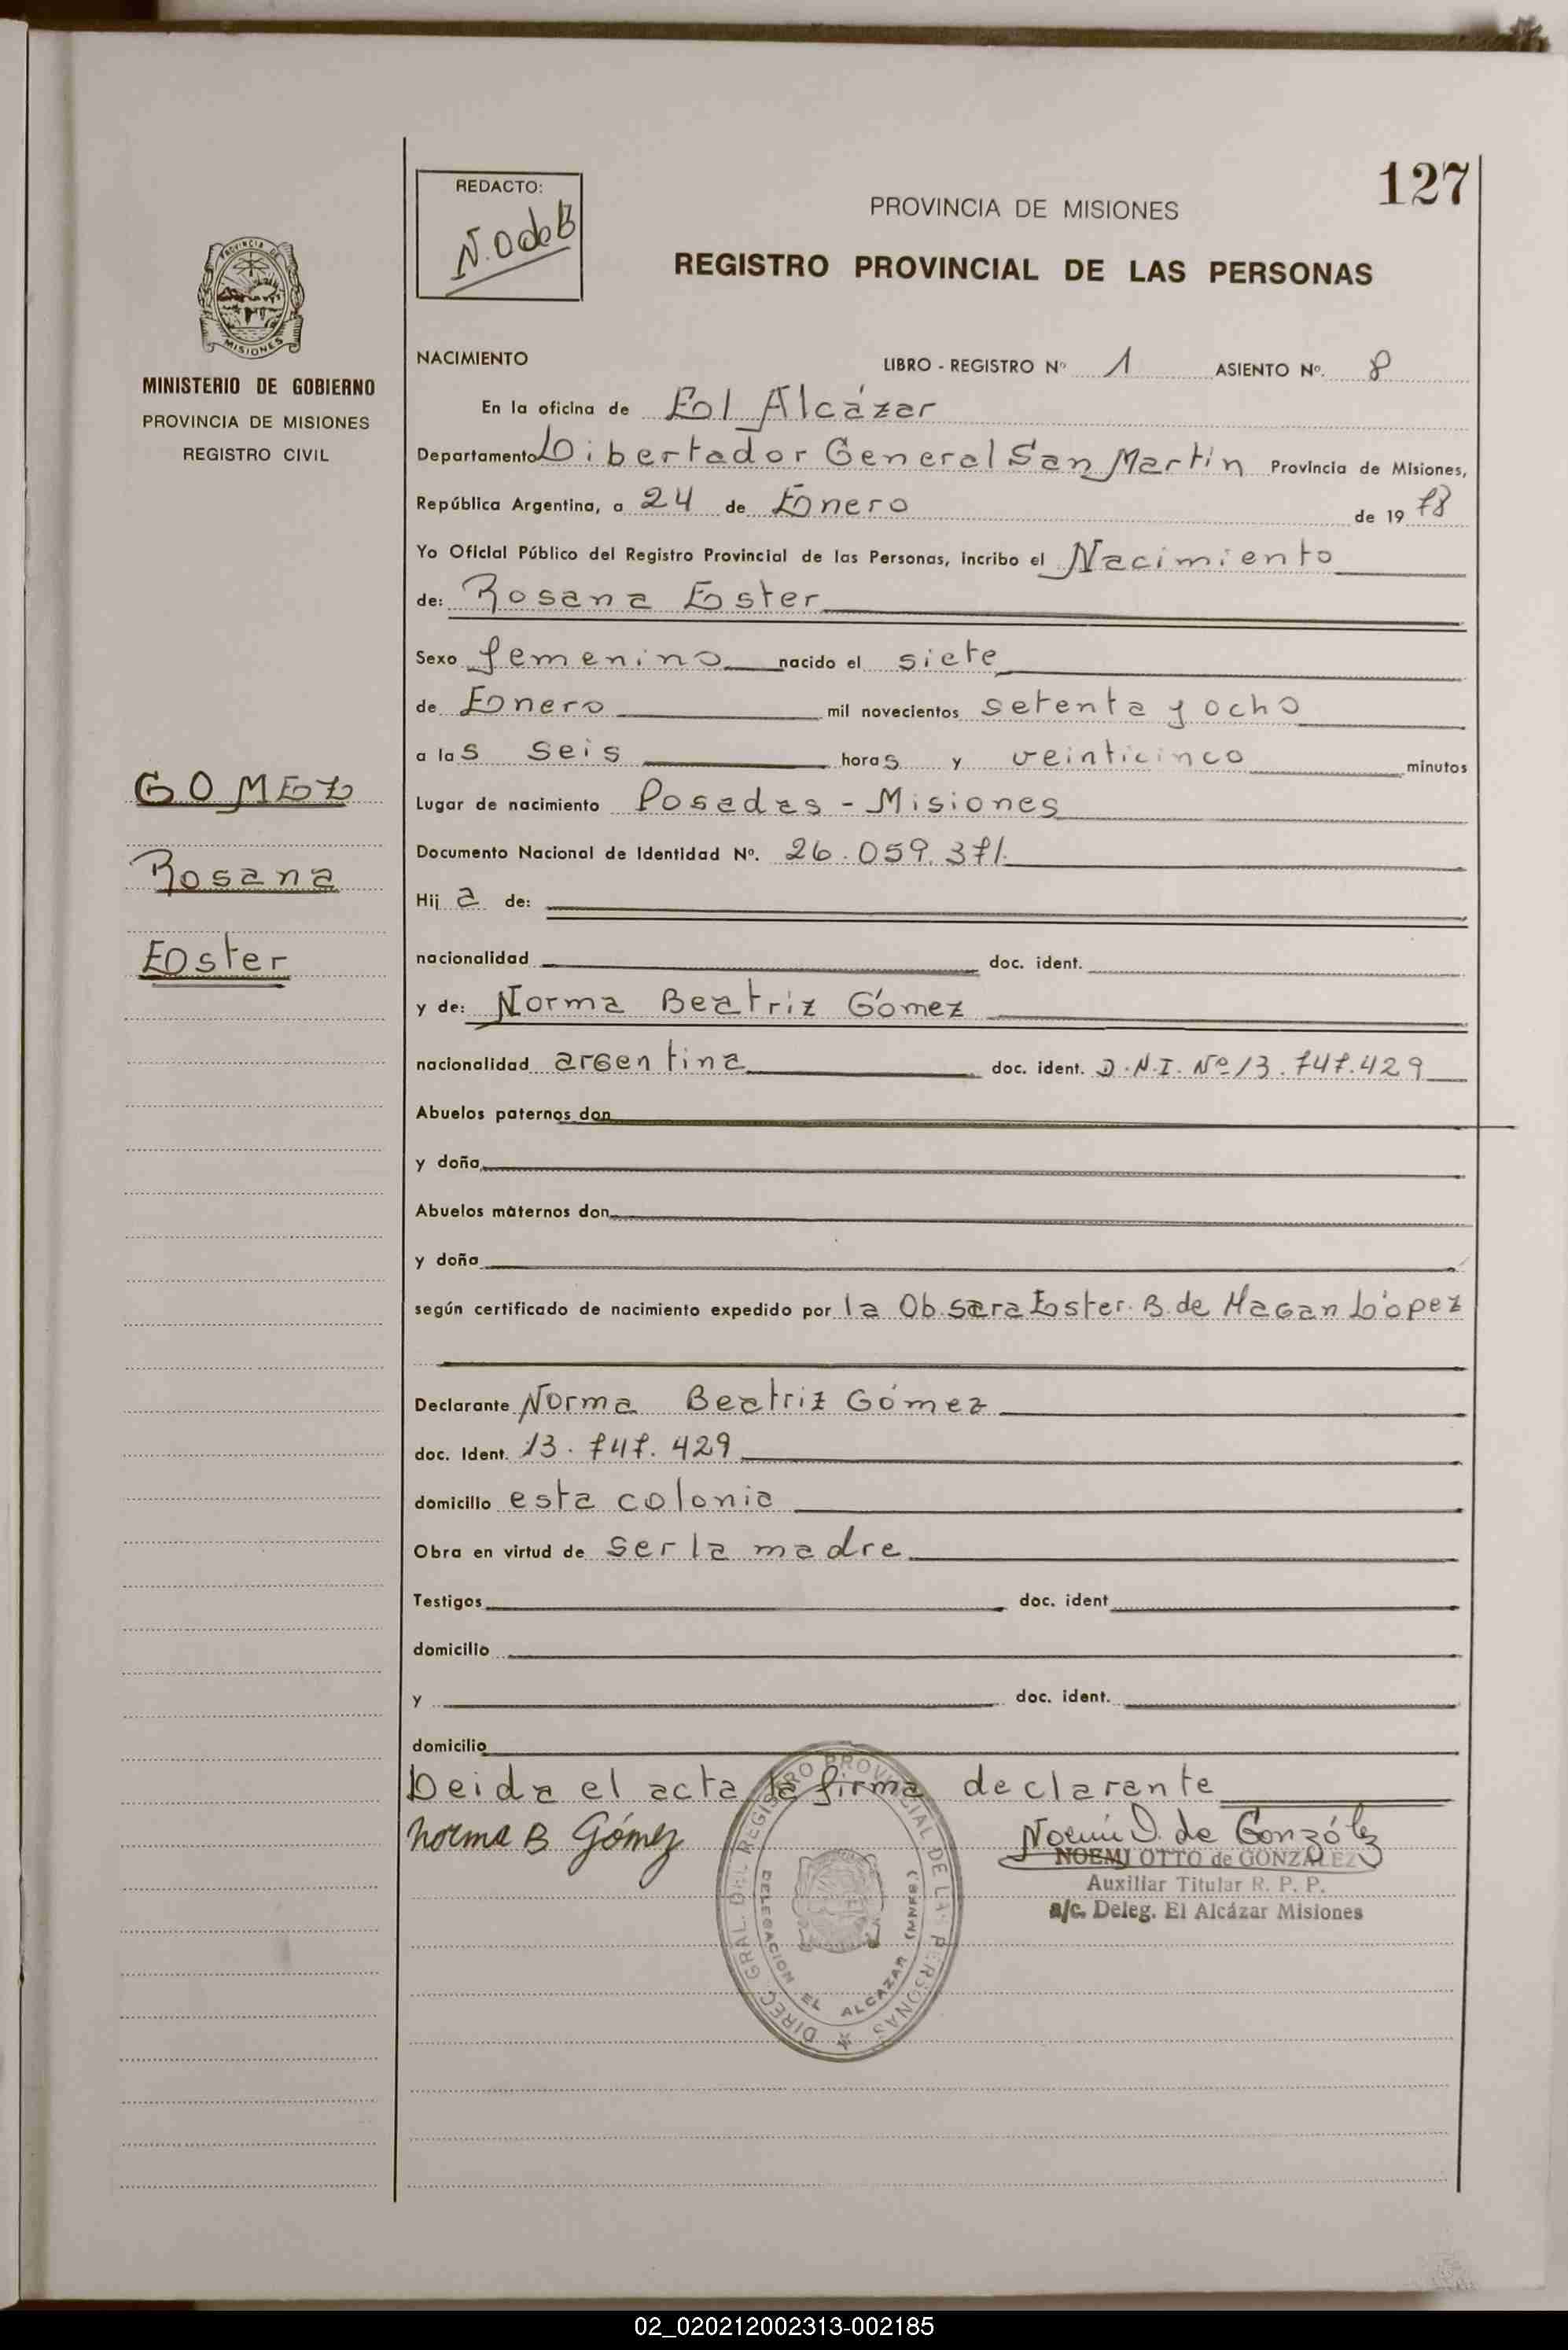 127
REDACTO:
N. O de G
PROVINCIA DE MISIONES
REGISTRO PROVINCIAL DE LAS PERSONAS
PROVINCIA DE
MISIONES
MINISTERIO DE GOBIERNO
PROVINCIA DE MISIONES
REGISTRO CIVIL
NACIMIENTO LIBRO - REGISTRO Nº 1 ASIENTO Nº. 8
En la oficina de El Alcázar
Departamento Libertador General San Martín Provincia de Misiones,
República Argentina, a 24 de Enero de 19 78
Yo Oficial Público del Registro Provincial de las Personas, incribo el Nacimiento
de: Rosana Ester
Sexo femenino nacido el siete
de Enero mil novecientos setenta y ocho
a las seis horas y veinticinco minutos
GOMEZ
Rosana
Ester
Lugar de nacimiento Posadas - Misiones
Documento Nacional de Identidad Nº. 26.059.371.
Hija de:
nacionalidad doc. ident.
y de: Norma Beatriz Gómez
nacionalidad argentina doc. ident. D.N.I. Nº 13.747.429
Abuelos paternos don
y doña
Abuelos maternos don
y doña
según certificado de nacimiento expedido por la Ob. Sara Ester B. de Magan López
Declarante Norma Beatriz Gómez
doc. Ident. 13.747.429
domicilio esta colonia
Obra en virtud de ser la madre
Testigos doc. ident
domicilio
y doc. ident.
domicilio
Leida el acta la firma declarante
Norma B Gómez
Noemi O. de González
NOEMI OTTO de GONZALEZ
Auxiliar Titular R. P. P.
a/c. Deleg. El Alcázar Misiones
DIREC. GRAL. DEL REGISTRO PROVINCIAL DE LAS PERSONAS
DELEGACION EL ALCAZAR (MNES.)
02_020212002313-002185